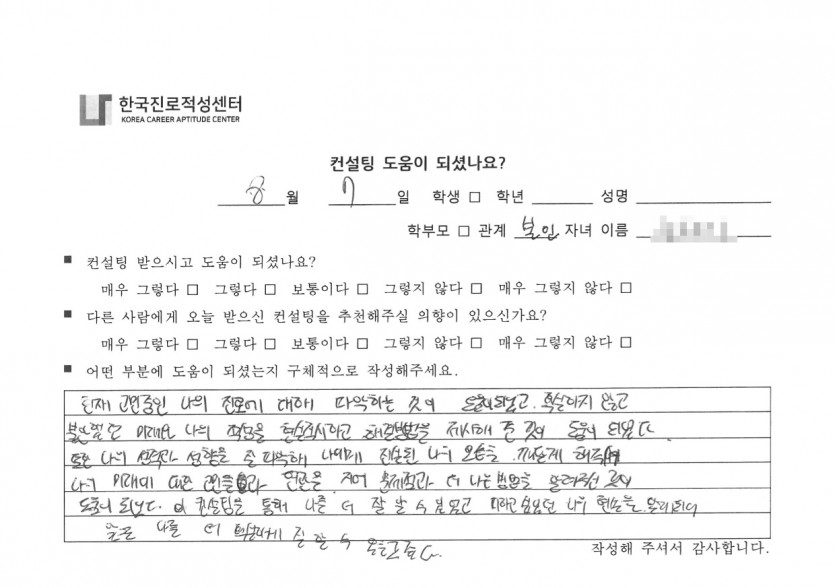 한국진로적성센터
KOREA CAREER APTITUDE CENTER
컨설팅 도움이 되셨나요?
8 월 7 일 학생 □ 학년 성명
학부모 □ 관계 본인 자녀 이름
■ 컨설팅 받으시고 도움이 되셨나요?
매우 그렇다 □ 그렇다 □ 보통이다 □ 그렇지 않다 □ 매우 그렇지 않다 □
■ 다른 사람에게 오늘 받으신 컨설팅을 추천해주실 의향이 있으신가요?
매우 그렇다 □ 그렇다 □ 보통이다 □ 그렇지 않다 □ 매우 그렇지 않다 □
■ 어떤 부분에 도움이 되셨는지 구체적으로 작성해주세요.
현재 고민중인 나의 진로에 대해 파악하는 것이 도움이 되었고, 확실하지 않고
나의 적성을 해결방법을 제시해 준 것이 도움이 되었다.
또한 나의 성격과 성향을 잘 파악해 나에게 나의 모습을 깨닫게
나의 미래에 대한 더 나은 방법을 알려주신 것이
도움이 되었다. 이 컨설팅을 통해 나를 더 잘 알 수 있었고 나의 현실을
앞으로 나를 더 잘 알 수
작성해 주셔서 감사합니다.